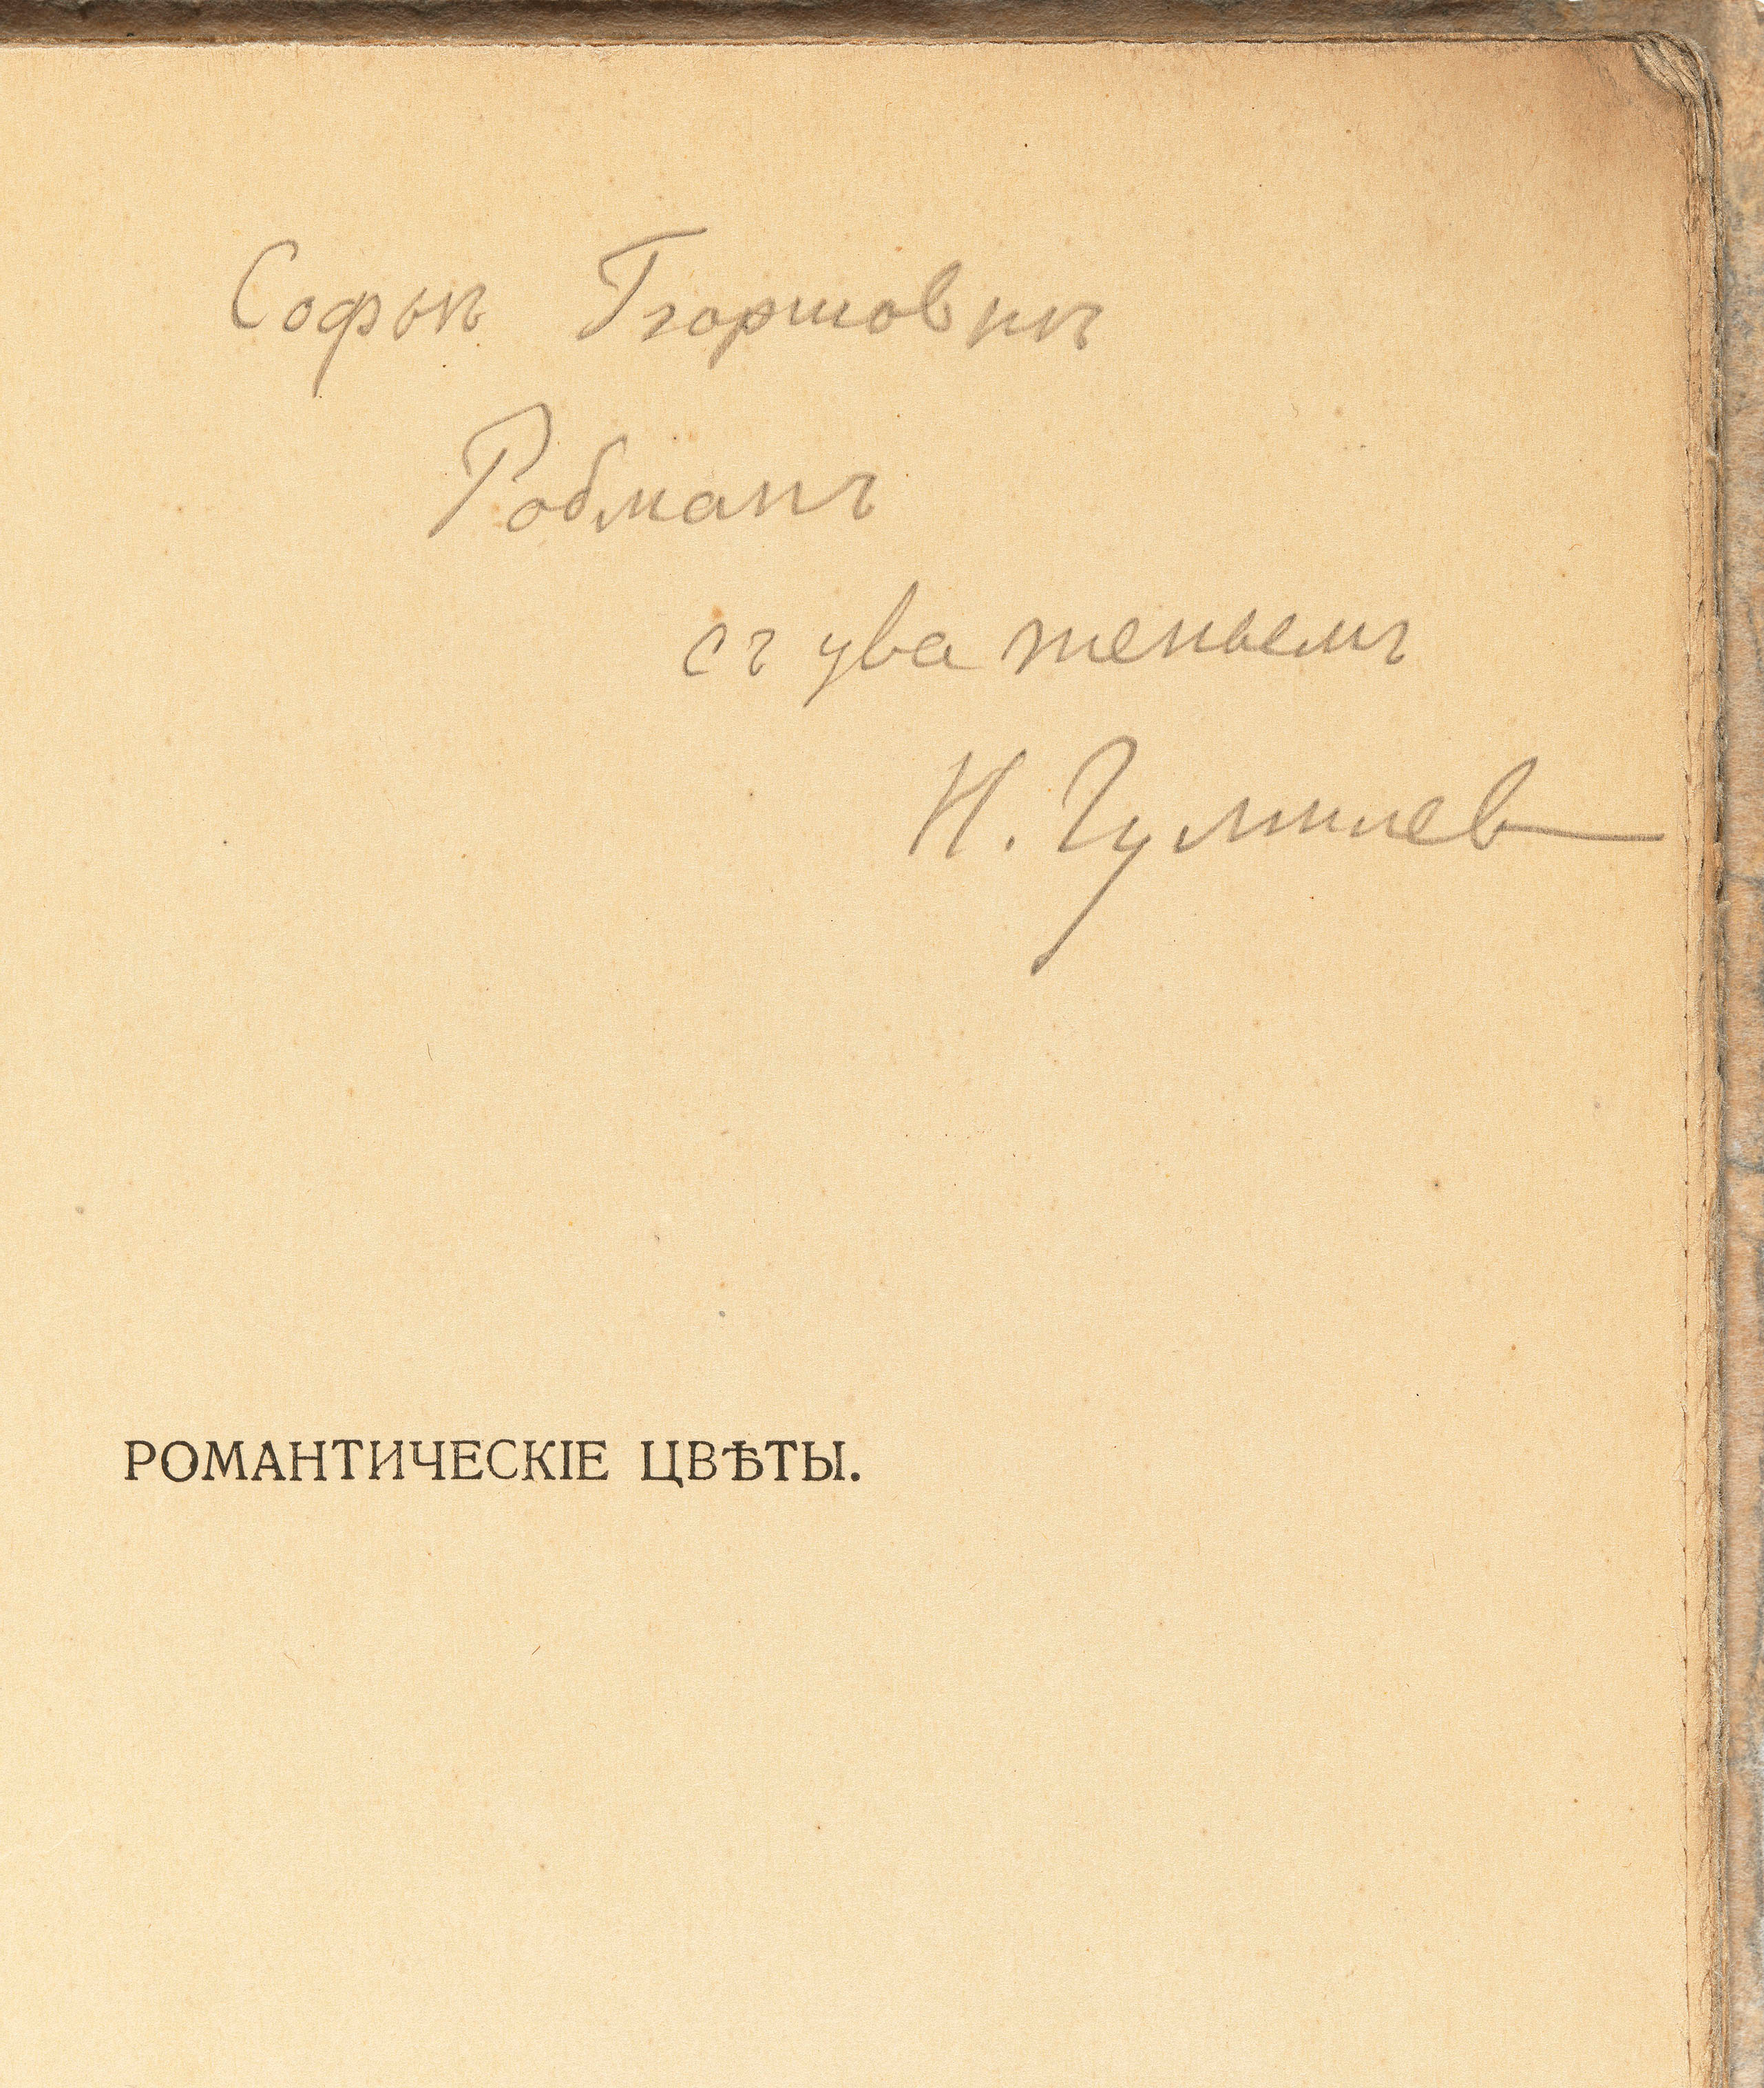 Софьѣ Георгіовнѣ
Робманъ
съ уваженьемъ
Н. Гумилев
РОМАНТИЧЕСКІЕ ЦВѢТЫ.